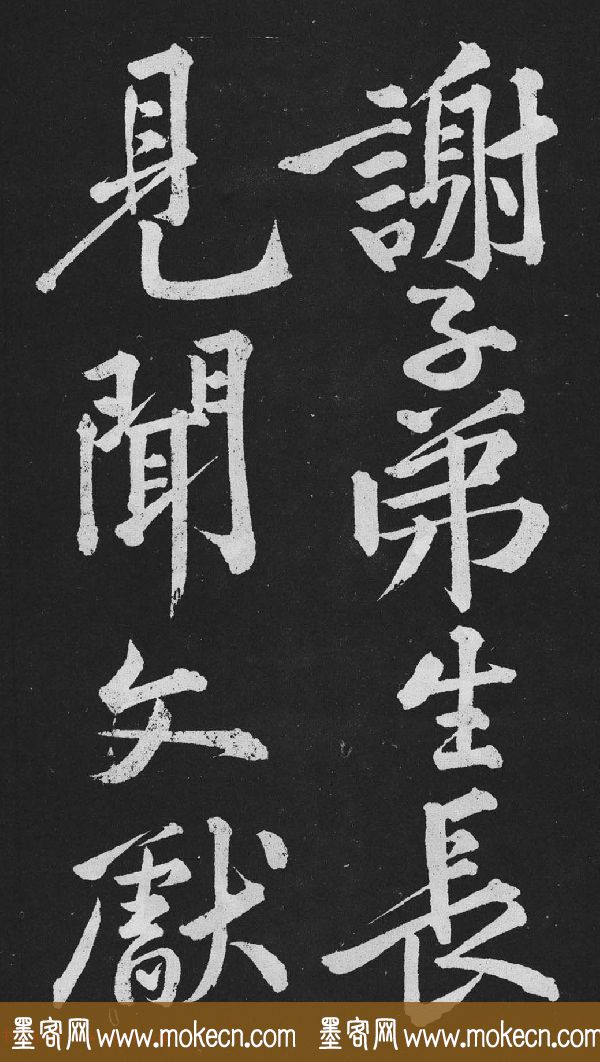 謝子弟生長
見聞文獻
墨客网 www.mokecn.com 墨客网 www.mokecn.com